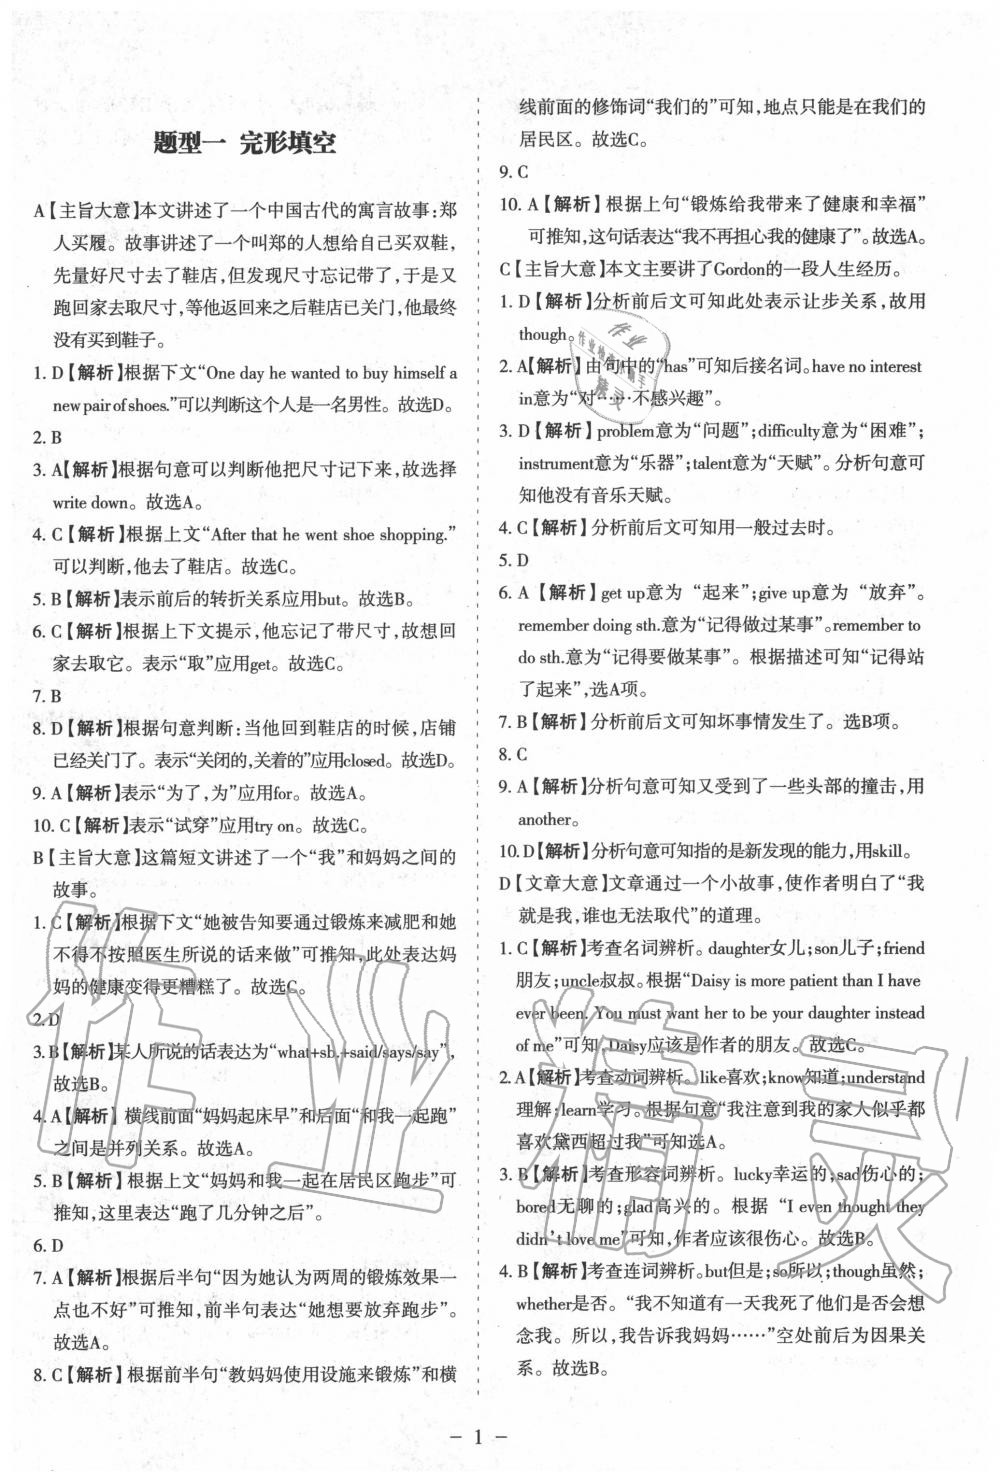 题型一 完形填空
A【主旨大意】本文讲述了一个中国古代的寓言故事:郑
人买履。故事讲述了一个叫郑的人想给自己买双鞋,
先量好尺寸去了鞋店,但发现尺寸忘记带了,于是又
跑回家去取尺寸,等他返回来之后鞋店已关门,他最终
没有买到鞋子。
1. D【解析】根据下文“One day he wanted to buy himself a
new pair of shoes.”可以判断这个人是一名男性。故选D。
2. B
3. A【解析】根据句意可以判断他把尺寸记下来,故选择
write down。故选A。
4. C【解析】根据上文“After that he went shoe shopping.”
可以判断,他去了鞋店。故选C。
5. B【解析】表示前后的转折关系应用but。故选B。
6. C【解析】根据上下文提示,他忘记了带尺寸,故想回
家去取它。表示“取”应用get。故选C。
7. B
8. D【解析】根据句意判断:当他回到鞋店的时候,店铺
已经关门了。表示“关闭的,关着的”应用closed。故选D。
9. A【解析】表示“为了,为”应用for。故选A。
10. C【解析】表示“试穿”应用try on。故选C。
B【主旨大意】这篇短文讲述了一个“我”和妈妈之间的
故事。
1. C【解析】根据下文“她被告知要通过锻炼来减肥和她
不得不按照医生所说的话来做”可推知,此处表达妈
妈的健康变得更糟糕了。故选C。
2. D
3. B【解析】某人所说的话表达为“what+sb.+said/says/say”,
故选B。
4. A【解析】横线前面“妈妈起床早”和后面“和我一起跑”
之间是并列关系。故选A。
5. B【解析】根据上文“妈妈和我一起在居民区跑步”可
推知,这里表达“跑了几分钟之后”。
6. D
7. A【解析】根据后半句“因为她认为两周的锻炼效果一
点也不好”可推知,前半句表达“她想要放弃跑步”。
故选A。
8. C【解析】根据前半句“教妈妈使用设施来锻炼”和横
线前面的修饰词“我们的”可知,地点只能是在我们的
居民区。故选C。
9. C
10. A【解析】根据上句“锻炼给我带来了健康和幸福”
可推知,这句话表达“我不再担心我的健康了”。故选A。
C【主旨大意】本文主要讲了Gordon的一段人生经历。
1. D【解析】分析前后文可知此处表示让步关系,故用
though。
2. A【解析】由句中的“has”可知后接名词。have no interest
in意为“对……不感兴趣”。
3. D【解析】problem意为“问题”;difficulty意为“困难”;
instrument意为“乐器”;talent意为“天赋”。分析句意可
知他没有音乐天赋。
4. C【解析】分析前后文可知用一般过去时。
5. D
6. A【解析】get up意为“起来”;give up意为“放弃”。
remember doing sth.意为“记得做过某事”。remember to
do sth.意为“记得要做某事”。根据描述可知“记得站
了起来”,选A项。
7. B【解析】分析前后文可知坏事情发生了。选B项。
8. C
9. A【解析】分析句意可知又受到了一些头部的撞击,用
another。
10. D【解析】分析句意可知指的是新发现的能力,用skill。
D【文章大意】文章通过一个小故事,使作者明白了“我
就是我,谁也无法取代”的道理。
1. C【解析】考查名词辨析。daughter女儿;son儿子;friend
朋友;uncle叔叔。根据“Daisy is more patient than I have
ever been. You must want her to be your daughter instead
of me”可知,Daisy应该是作者的朋友。故选C。
2. A【解析】考查动词辨析。like喜欢;know知道;understand
理解;learn学习。根据句意“我注意到我的家人似乎都
喜欢黛西超过我”可知选A。
3. B【解析】考查形容词辨析。lucky幸运的,sad伤心的;
bored无聊的;glad高兴的。根据“I even thought they
didn't love me”可知,作者应该很伤心。故选B。
4. B【解析】考查连词辨析。but但是;so所以;though虽然;
whether是否。“我不知道有一天我死了他们是否会想
念我。所以,我告诉我妈妈……”空处前后为因果关
系。故选B。
作业精灵
- 1 -